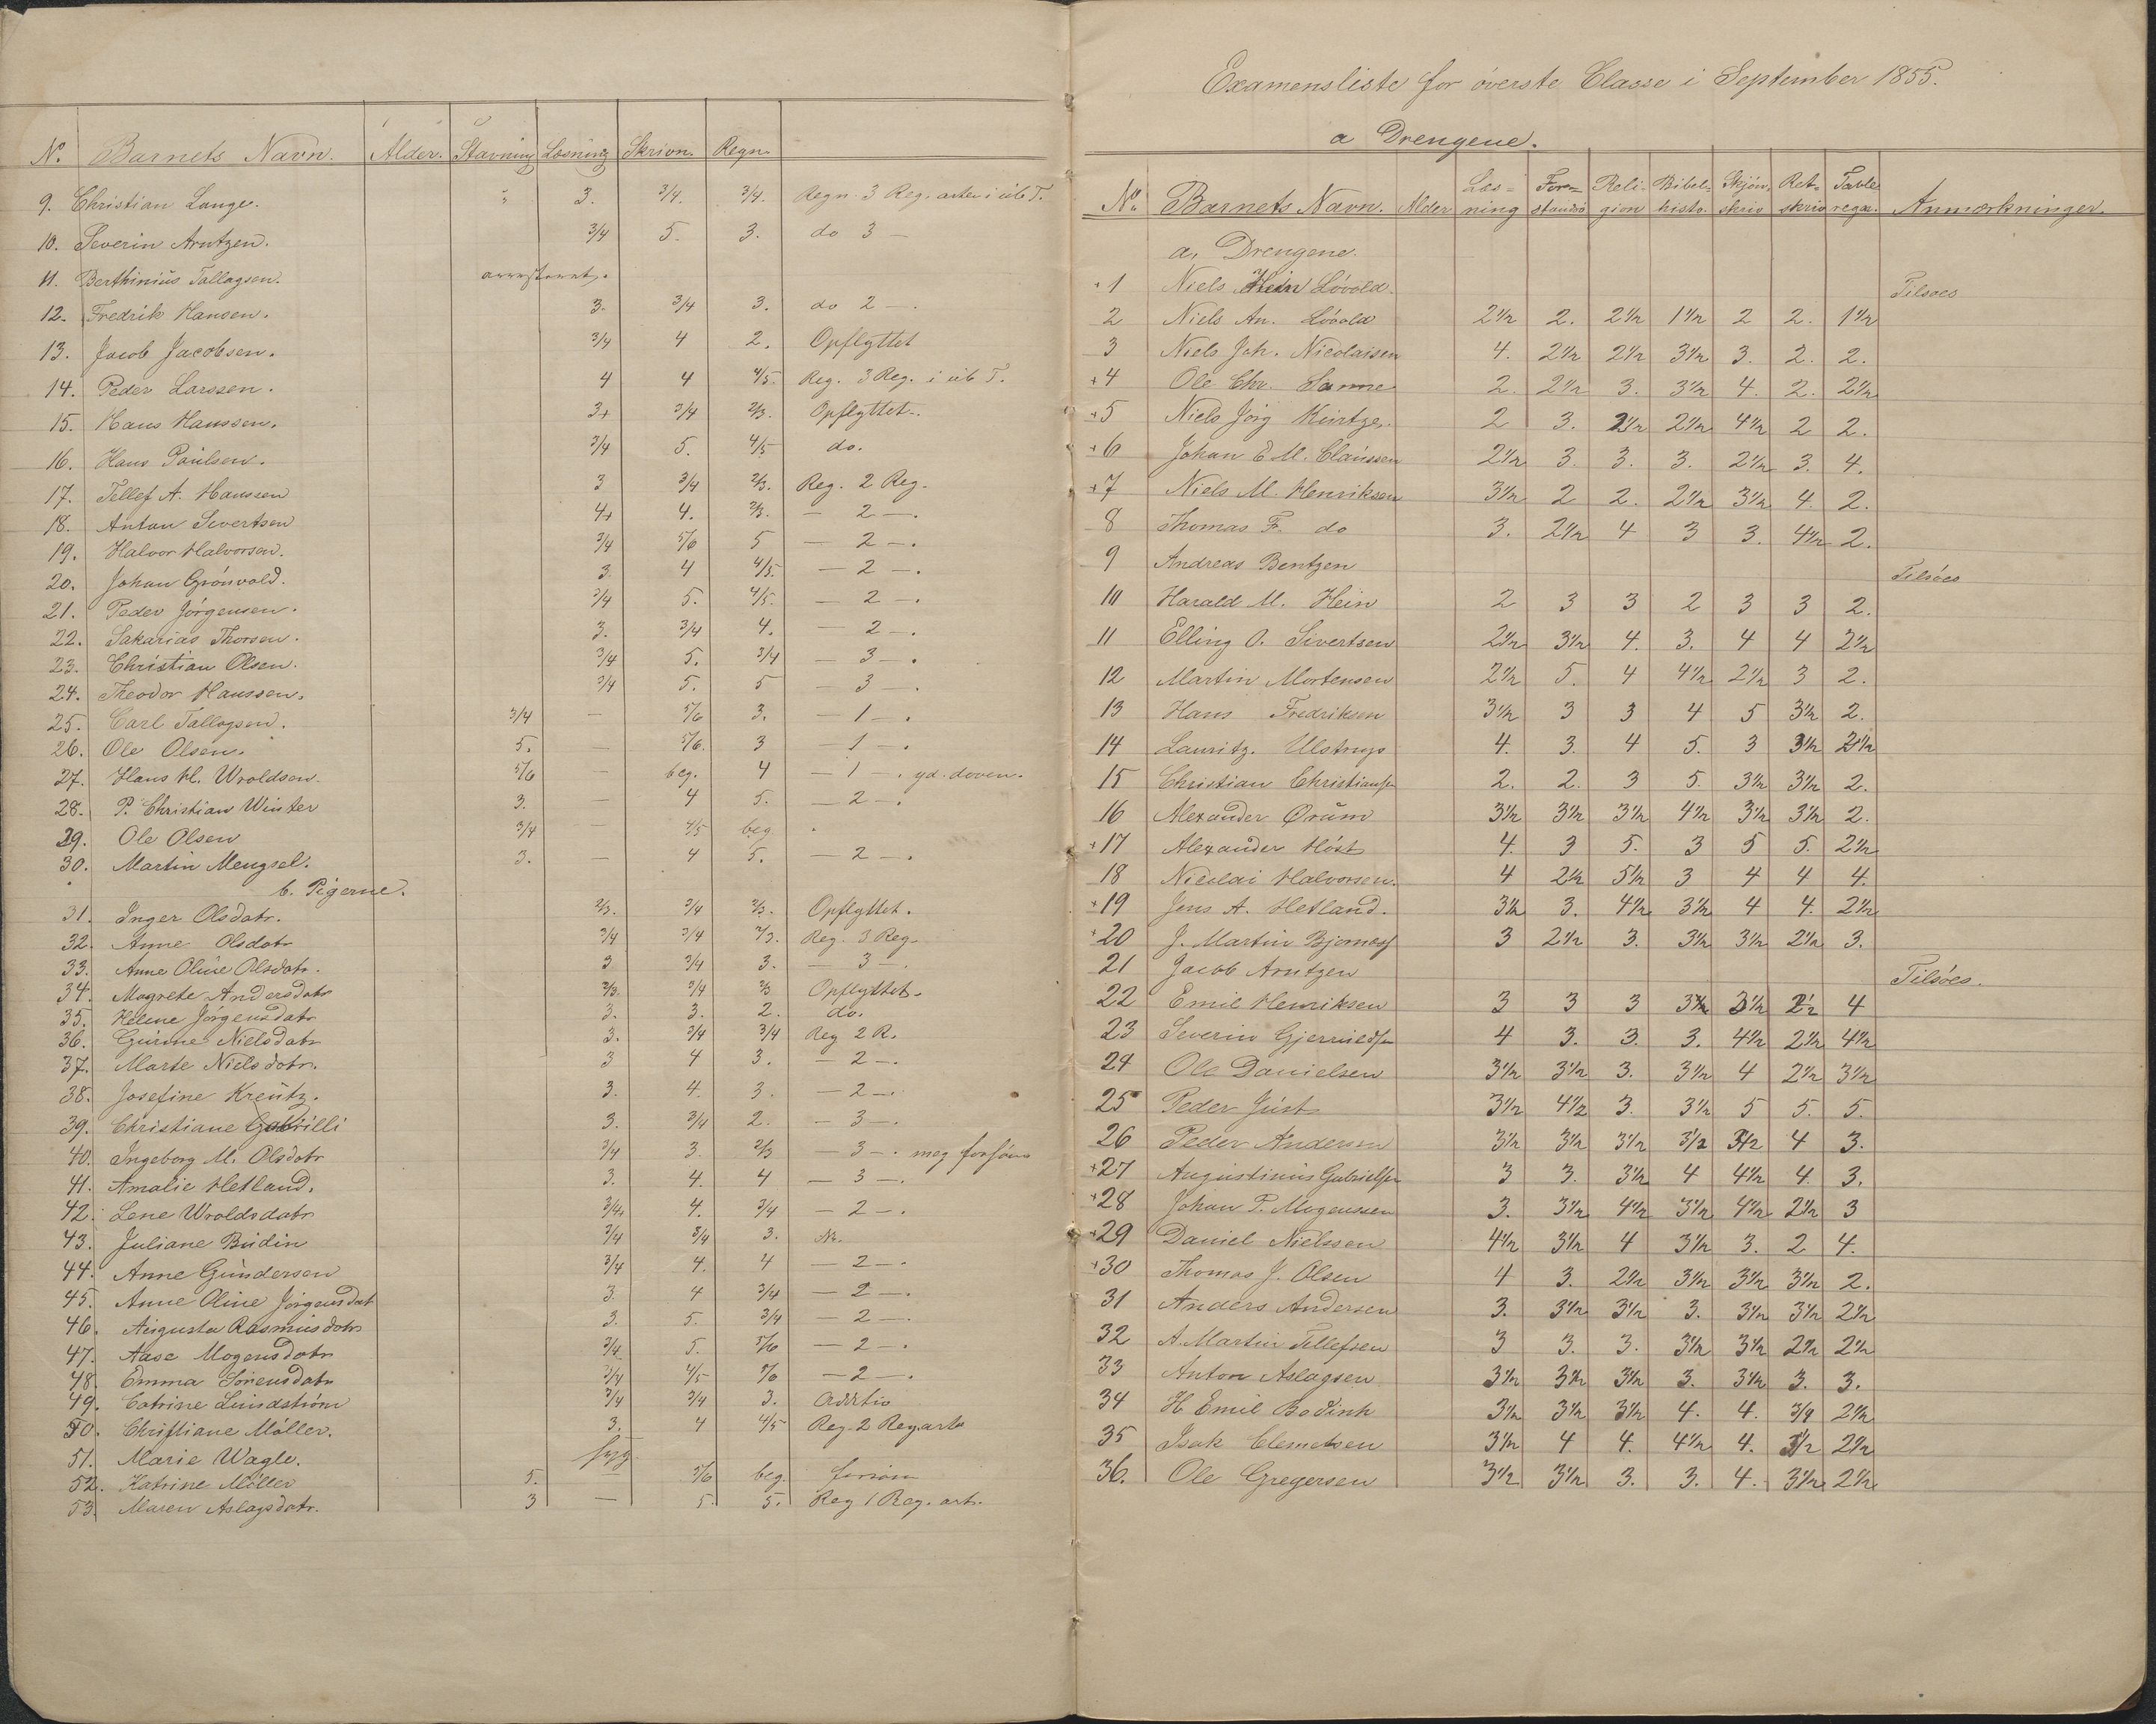 No. Barnets Navn. Alder. Stavning Læsning Skrivn. Regn.
9. Christian Lange. " 3. 3/4. 3/4. Regn. 3 Reg. arter i ub T.
10. Severin Arntzen. 3/4 5. 3. do 3 —
11. Berthinius Tallagsen.
12. Fredrik Hansen. 3. 3/4 3. do 2 — .
13. Jacob Jacobsen. 3/4 4 2. Opflyttet
14. Peder Larssen. 4 4 4/5. Reg. 3 Reg. i ub T.
15. Hans Hanssen. 3+ 3/4 2/3. Opflyttet.
16. Hans Poulsen. 3/4 5. 4/5 do.
17. Tellef A. Hanssen 3 3/4 2/3. Reg. 2 Reg.
18. Anton Sivertsen 4+ 4. 2/3. — 2 — .
19. Halvor Halvorsen. 3/4 5/6 5 — 2 — .
20. Johan Grönvold. 3 4 4/5. — 2 — .
21. Peder Jörgensen. 3/4 5. 4/5. — 2 — .
22. Sakarias Thorsen. 3. 3/4 4. — 2 — .
23. Christian Olsen. 3/4 5. 3/4 — 3 — .
24. Theodor Hanssen. 3/4 5. 5 — 3 — .
25. Carl Tallagsen. 3/4 — 5/6 3. — 1 — .
26. Ole Olsen. 5. — 5/6. 3 — 1 — .
27. Hans H. Wroldsen. 5/6 — beg. 4 — 1 — . yd. doven.
28. P. Christian Winter 3. — 4 5. — 2 — .
29. Ole Olsen 3/4 — 4/5 beg .
30. Martin Mengsel. 3. — 4 5. — 2 — .
b. Pigerne.
31. Inger Olsdatr. 2/3. 3/4 2/3. Opflyttet.
32. Anne Olsdatr 3/4 3/4 2/3. Reg. 3 Reg.
33. Anne Oline Olsdatr. 3 3/4 3. — 3 — .
34. Magrete Andersdatr 2/3. 3/4 2/3 Opflyttet.
35. Helene Jörgensdatr 3. 3. 2. do.
36. Gurine Nielsdatr 3. 3/4 3/4 Reg 2 R.
37. Marte Nielsdatr. 3 4 3. — 2 — .
38. Josefine Kreutz. 3. 4. 3. — 2 — .
39. Christiane Gabrilli 3. 3/4 2. — 3 — .
40. Ingeborg M. Olsdatr 3/4 3. 2/3 — 3 — . meg forsöm
41. Amalie Hetland. 3. 4. 4 — 3 — .
42. Lene Wroldsdatr 3/4+ 4. 3/4 — 2 — .
43. Juliane Budin 3/4 3/4 3. No.
44. Anne Gundersen 3/4 4. 4 — 2 — .
45. Anne Oline Jörgensdat 3. 4 3/4 — 2 — .
46. Augusta Rasmusdatr 3. 5. 3/4 — 2 — .
47. Aase Mogensdatr 3/4 5. 5/6 — 2 — .
48. Emma Sörensdatr 3/4 4/5 5/6 — 2 — .
49. Catrine Lundström 3/4 3/4 3. Additio
50. Christiane Möller. 3. 4 4/5 Reg 2 Regart
51. Marie Wagle. syg.
52. Katrine Möller 5. 5/6 beg.
53. Maren Aslagsdatr. 3 — 5. 5. Reg 1 Reg. art.
Examensliste for överste Classe i September 1855.
a Drengene.
No. Barnets Navn. Alder Læs= ning For= stands Reli= gion Bibel= histo. Skjön. skriv Ret= skriv Tavle regn. Anmærkninger.
a, Drengene.
+ 1 Niels Hein Lövold. Tilsöes
2 Niels An. Lövold 2 1/2 2. 2 1/2 1 1/2 2 2. 1 1/2
3 Niels Joh. Nicolaisen 4. 2 1/2 2 1/2 3 1/2 3. 2. 2.
+4 Ole Chr. Lanne 2. 2 1/2 3. 3 1/2 4. 2. 2 1/2
+5 Niels Jörg Kurtzer. 2 3. 2 1/2 2 1/2 4 1/2 2 2.
+6 Johan E M. Claussen 2 1/2 3. 3. 3. 2 1/2 3. 4.
+7 Niels M. Henriksen 3 1/2 2 2. 2 1/2 3 1/2 4. 2.
8 Thomas F. do 3. 2 1/2 4 3 3. 4 1/2 2.
9 Andreas Bentzen Tilsöes
10 Harald M. Hein 2 3 3 2 3 3 2.
11 Elling O. Sivertsen 2 1/2 3 1/2 4. 3. 4 4 2 1/2
12 Martin Mortensen 2 1/2 5. 4 4 1/2 2 1/2 3 2.
13 Hans Fredriksen 3 1/2 3 3 4 5 3 1/2 2.
14 Lauritz. Ulstrup 4. 3. 4 5. 3 3 1/2 2 1/2
15 Christian Christiansen 2. 2. 3 5. 3 1/2 3 1/2 2.
16 Alexander Örum 3 1/2 3 1/2 3 1/2 4 1/2 3 1/2 3 1/2 2.
+17 Alexander Höst 4. 3 5. 3 5 5. 2 1/2
18 Nicolai Halvorsen. 4 2 1/2 5 1/2 3 4 4 4.
+19 Jens A. Hetland. 3 1/2 3. 4 1/2 3 1/2 4 4. 2 1/2
+20 J. Martin Bjornass 3 2 1/2 3. 3 1/2 3 1/2 2 1/2 3.
21 Jacob Arntzen Tilsöes.
22 Emil Henriksen 3 3 3 3 1/2 3 1/2 2 1/2 4
23 Severin Gjerrildsen 4 3. 3. 3. 4 1/2 2 1/2 4 1/2
24 Ole Danielsen 3 1/2 3 1/2 3. 3 1/2 4 2 1/2 3 1/2
25 Peder Just 3 1/2 4 1/2 3. 3 1/2 5 5. 5.
26 Peder Andersen 3 1/2 3 1/2 3 1/2 3 1/2 3 1/2 4 3.
+27 Augustinus Gabrielsen 3 3. 3 1/2 4 4 1/2 4. 3.
+28 Johan P. Mogenssen 3. 3 1/2 4 1/2 3 1/2 4 1/2 2 1/2 3
+29 Daniel Nielssen 4 1/2 3 1/2 4 3 1/2 3. 2 4.
+30 Thomas J. Olsen 4 3. 2 1/2 3 1/2 3 1/2 3 1/2 2.
31 Anders Andersen 3. 3 1/2 3 1/2 3. 3 1/2 3 1/2 2 1/2
32 A. Martin Tellefsen 3 3. 3. 3 1/2 3 1/2 2 1/2 2 1/2
33 Anton Aslagsen 3 1/2 3 1/2 3 1/2 3. 3 1/2 3. 3.
34 H Emil Bodinh 3 1/2 3 1/2 3 1/2 4. 4. 3/4 2 1/2
35 Isak Clemetsen 3 1/2 4 4. 4 1/2 4. 3 1/2 2 1/2
36. Ole Gregersen 3 1/2 3 1/2 3. 3. 4. 3 1/2 2 1/2